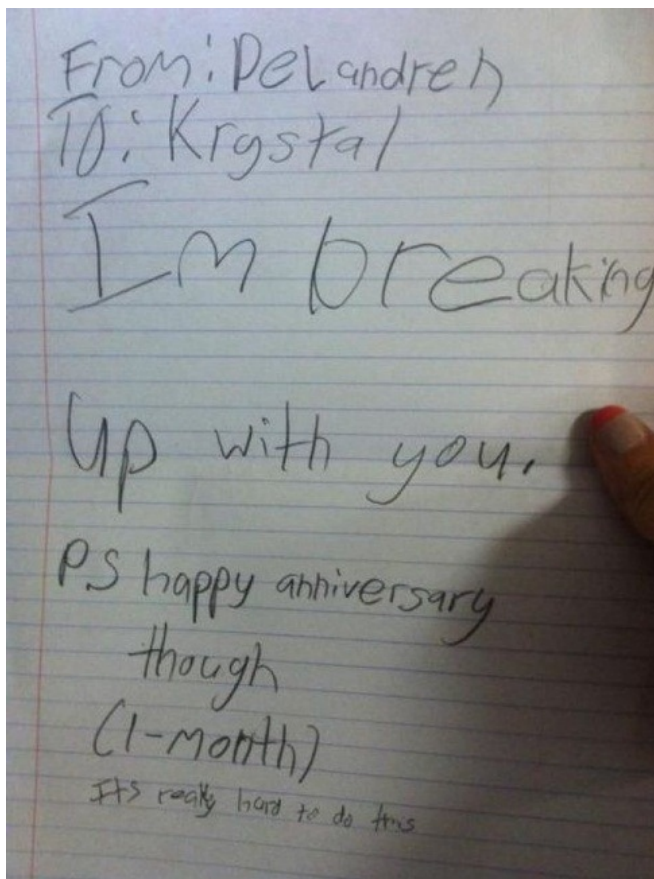 From: DeLandren
To: Krystal
Im breaking
Up with you.
PS happy anniversary
though
(1-month)
Its really hard to do this